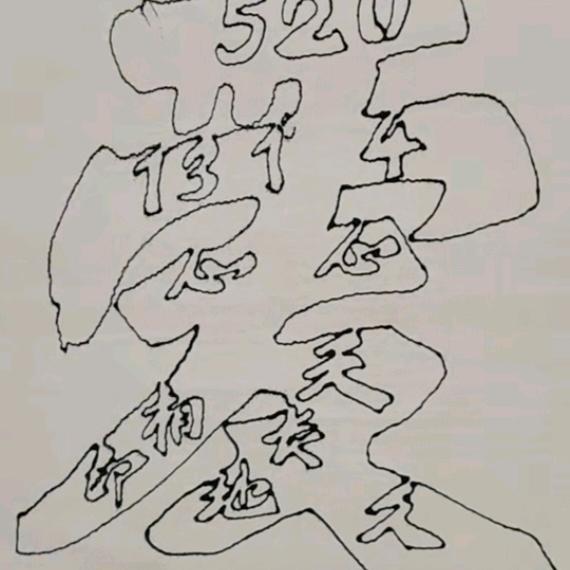 520
1314
心心相印
天长地久